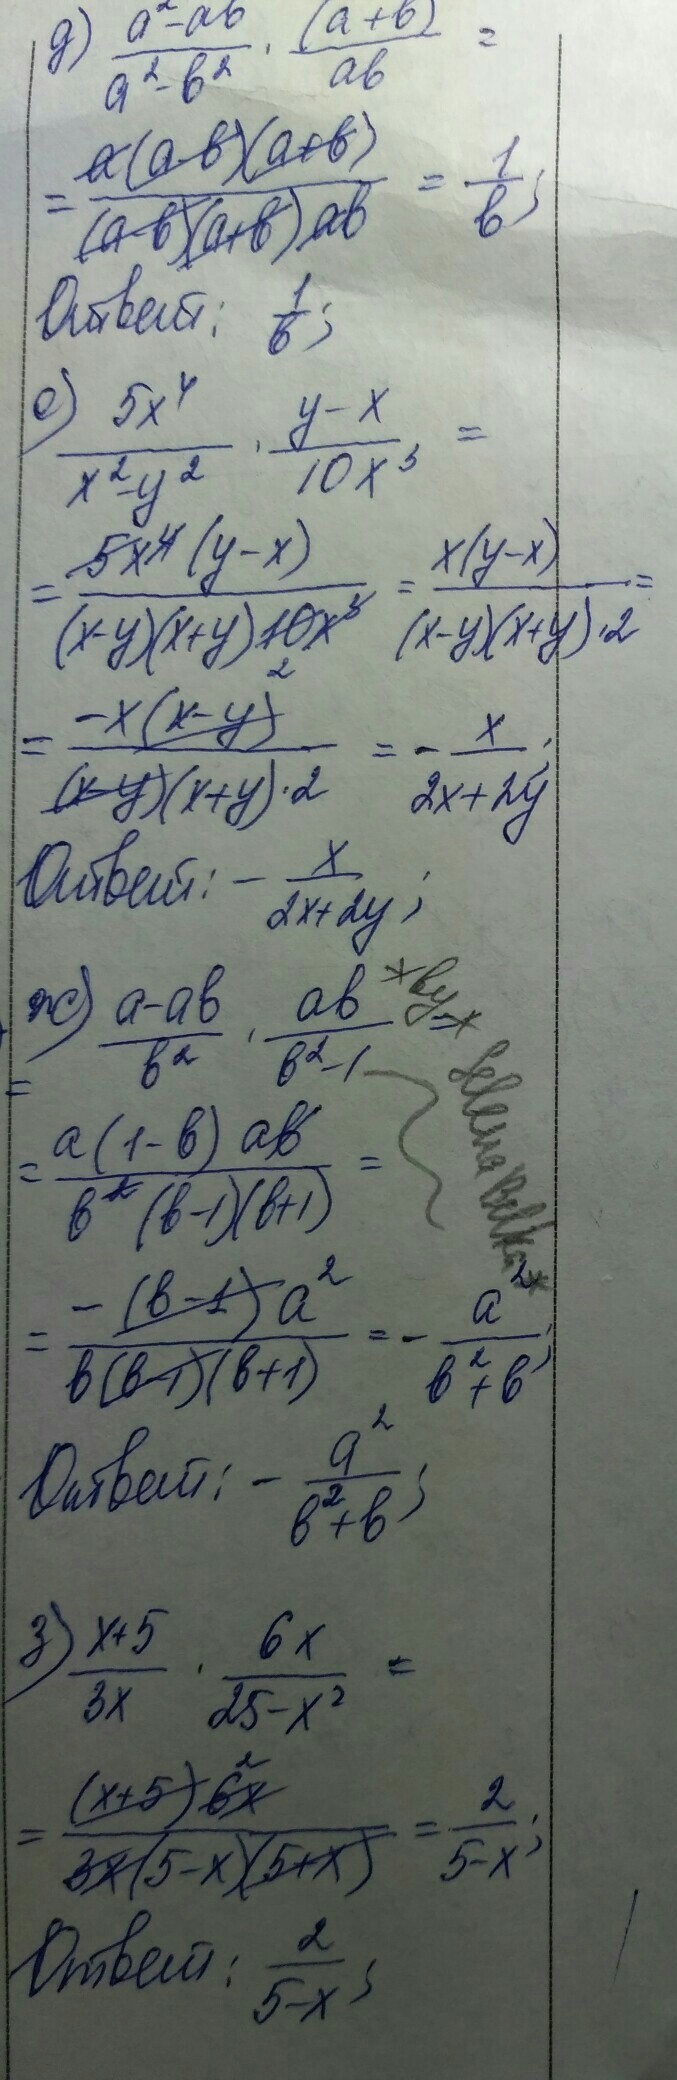 д) (a²-ab)/(a²-b²) · (a+b)/ab =
= a(a-b)(a+b)/((a-b)(a+b)ab) = 1/b;
Ответ: 1/b;
е) 5x⁴/(x²-y²) · (y-x)/10x³ =
= 5x⁴(y-x)/((x-y)(x+y)10x³) = x(y-x)/((x-y)(x+y)·2) =
2
= -x(x-y)/((x-y)(x+y)·2) = - x/(2x+2y);
Ответ: - x/(2x+2y);
ж) (a-ab)/b² · ab/(b²-1) =
*by
Selena Belka*
= a(1-b)ab/(b²(b-1)(b+1)) =
= -(b-1)a²/(b(b-1)(b+1)) = - a²/(b²+b);
Ответ: - a²/(b²+b);
з) (x+5)/3x · 6x/(25-x²) =
2
= (x+5)6x/(3x(5-x)(5+x)) = 2/(5-x);
Ответ: 2/(5-x);